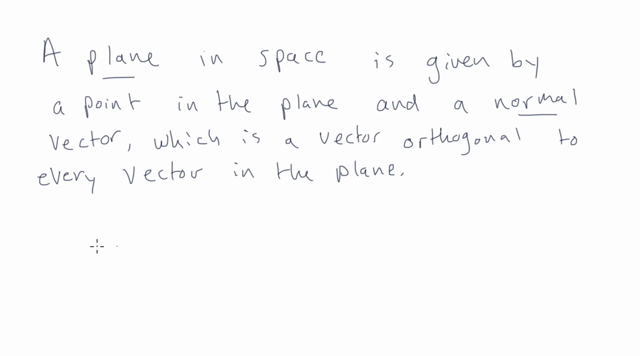 A plane in space is given by
a point in the plane and a normal
vector, which is a vector orthogonal to
every vector in the plane.